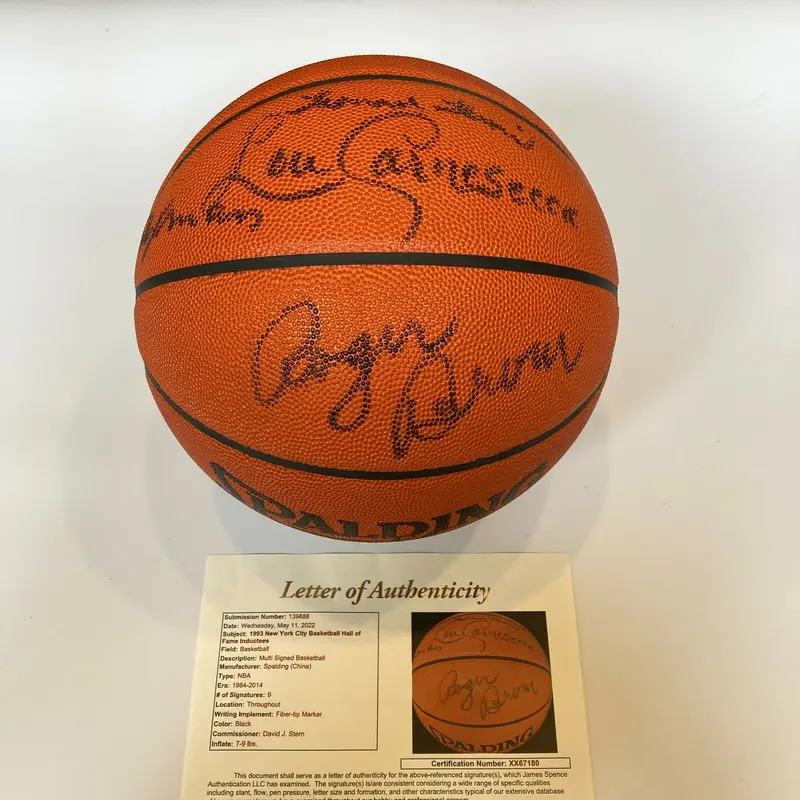 Lou Carnesecca
Roger Brown
SPALDING
Letter of Authenticity
Submission Number: 139888
Date: Wednesday, May 11, 2022
Subject: 1993 New York City Basketball Hall of
Fame Inductees
Field: Basketball
Description: Multi Signed Basketball
Manufacturer: Spalding (China)
Type: NBA
Era: 1984-2014
# of Signatures: 9
Location: Throughout
Writing Implement: Fiber-tip Marker
Color: Black
Commissioner: David J. Stern
Inflate: 7-9 lbs.
Lou Carnesecca
Roger Brown
SPALDING
Certification Number: XX67180
This document shall serve as a letter of authenticity for the above-referenced signature(s), which James Spence
Authentication LLC has examined. The signature(s) is/are consistent considering a wide range of specific qualities
including slant, flow, pen pressure, letter size and formation, and other characteristics typical of our extensive database